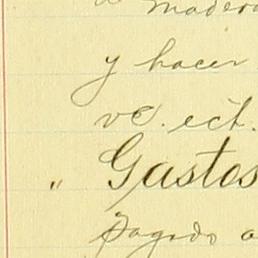 de madera
y hacer
vc. ect.
" Gastos
Pagado a